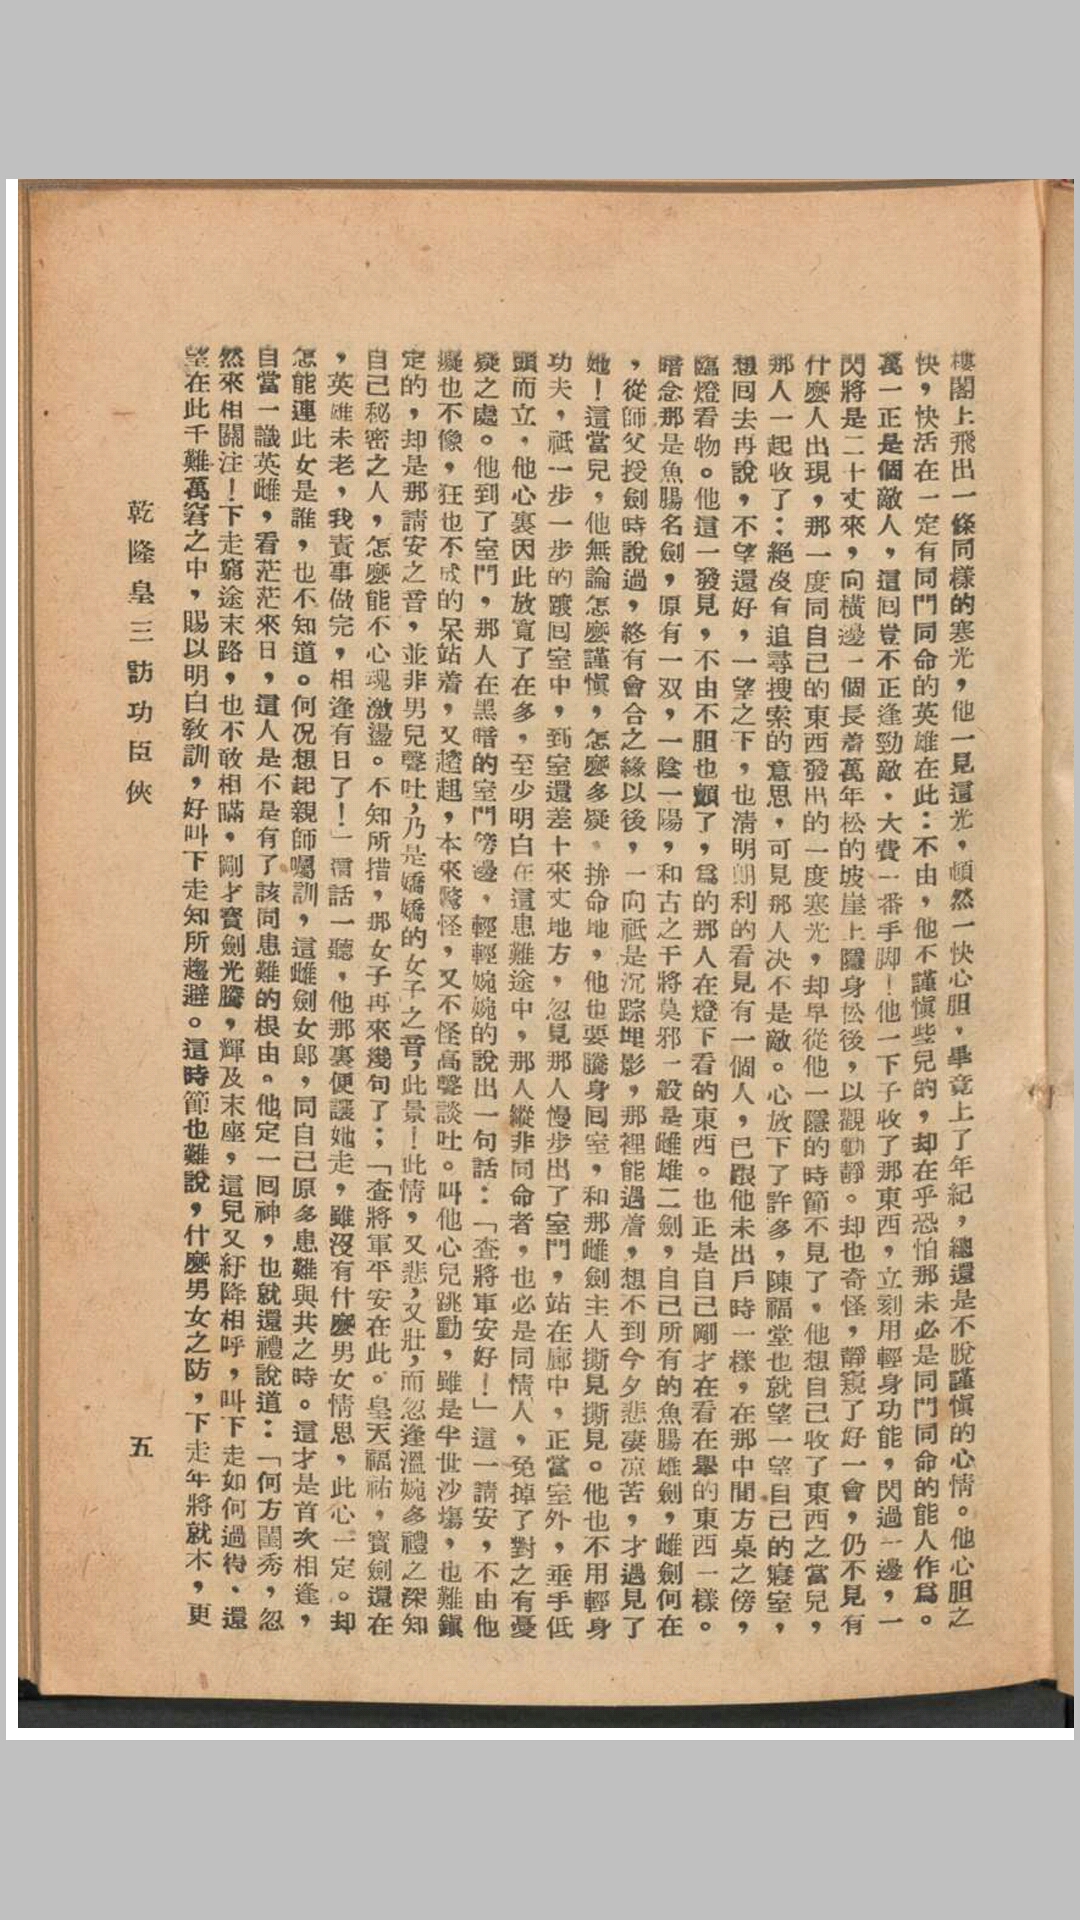 樓閣上飛出一條同樣的寒光，他一見這光，頓然一快心胆，畢竟上了年紀，總還是不脫謹愼的心情。他心胆之
快，快活在一定有同門同命的英雄在此：不由，他不謹愼些兒的，却在乎恐怕那未必是同門同命的能人作爲。
萬一正是個敵人，這回豈不正逢勁敵，大費一番手脚！他一下子收了那東西，立刻用輕身功能，閃過一邊，一
閃將是二十丈來，向橫邊一個長着萬年松的坡崖上隱身松後，以觀動靜。却也奇怪，靜窺了好一會，仍不見有
什麽人出現，那一度同自己的東西發出的一度寒光，却早從他一隱的時節不見了。他想自己收了東西之當兒，
那人一起收了：絕沒有追尋搜索的意思，可見那人决不是敵。心放下了許多，陳福堂也就望一望自己的寢室，
想回去再說，不望還好，一望之下，也淸明朗利的看見有一個人，已跟他未出戶時一樣，在那中間方桌之傍，
臨燈看物。他這一發見，不由不胆也顫了，爲的那人在燈下看的東西。也正是自己剛才在看在舉的東西一樣。
暗念那是魚腸名劍，原有一双，一陰一陽，和古之干將莫邪一般是雌雄二劍，自己所有的魚腸雄劍，雌劍何在
，從師父授劍時說過，終有會合之緣以後，一向祗是沉踪埋影，那裡能遇着，想不到今夕悲凄凉苦，才遇見了
她！這當兒，他無論怎麽謹愼，怎麽多疑，拚命地，他也要騰身回室，和那雌劍主人撕見撕見。他也不用輕身
功夫，祗一步一步的踱回室中，到室還差十來丈地方，忽見那人慢步出了室門，站在廊中，正當室外，垂手低
頭而立，他心裏因此放寬了在多，至少明白在這患難途中，那人縱非同命者，也必是同情人，免掉了對之有憂
疑之處。他到了室門，那人在黑暗的室門旁邊，輕輕婉婉的說出一句話：「查將軍安好！」這一請安，不由他
癡也不像，狂也不成的呆站着，又趦趄，本來驚怪，又不怪高聲談吐。叫他心兒跳動，雖是半世沙塲，也難鎭
定的，却是那請安之音，並非男兒聲吐，乃是嬌嬌的女子之音，此景！此情，又悲，又壯，而忽逢溫婉多禮之深知
自己秘密之人，怎麽能不心魂激盪。不知所措，那女子再來幾句了：「查將軍平安在此。皇天福祐，寶劍還在
，英雄未老，我責事做完，相逢有日了！」這話一聽，他那裏便讓她走，雖沒有什麽男女情思，此心一定。却
怎能連此女是誰，也不知道。何况想起親師囑訓，這雌劍女郞，同自己原多患難與共之時。這才是首次相逢，
自當一識英雌，看茫茫來日，這人是不是有了該同患難的根由。他定一回神，也就還禮說道：「何方閨秀，忽
然來相關注！下走窮途末路，也不敢相瞞，剛才寶劍光騰，輝及末座，這兒又紆降相呼，叫下走如何過得、還
望在此千難萬窘之中，賜以明白敎訓，好叫下走知所趨避。這時節也難說，什麽男女之防，下走年將就木，更
乾隆皇三訪功臣俠
五